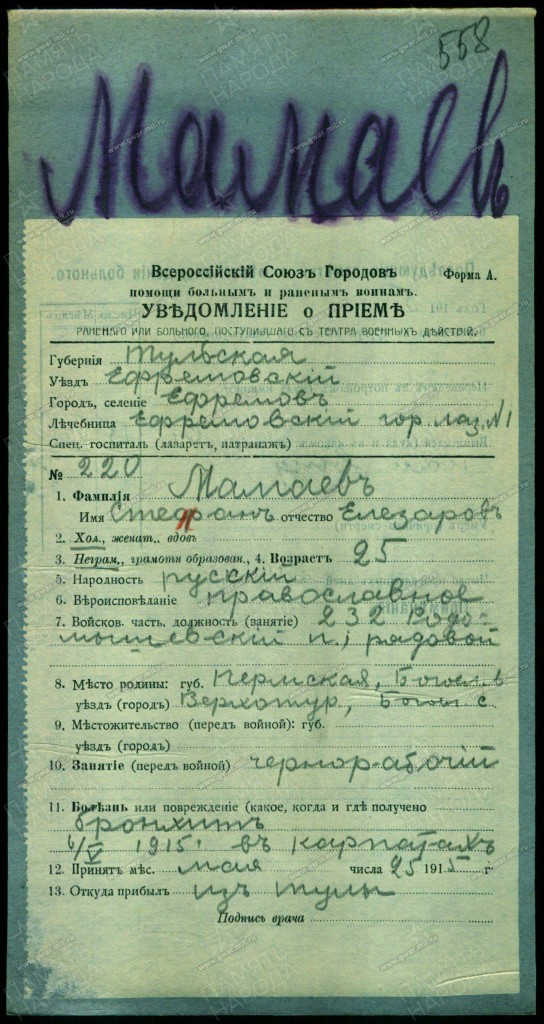 558
Мамаев
Всероссійскій Союзъ Городовъ
Форма А.
помощи больнымъ и раненымъ воинамъ.
УВѢДОМЛЕНІЕ о ПРІЕМѢ
РАНЕНАГО ИЛИ БОЛЬНОГО, ПОСТУПИВШАГО СЪ ТЕАТРА ВОЕННЫХЪ ДѢЙСТВІЙ.
Губернія Тульская
Уѣздъ Ефремовскій
Городъ, селеніе Ефремовъ
Лѣчебница Ефремовскій гор. лаз. №1
Спец. госпиталь (лазаретъ, патранажъ)
№ 220
1. Фамилія Мамаевъ
Имя Стефанъ отчество Елезаровъ
2. Хол., женат., вдовъ
3. Неграм., грамотн образован., 4. Возрастъ 25
5. Народность русскій
6. Вѣроисповѣданіе православное
7. Войсков. часть, должность (занятіе) 232 Радо-
мышевскій п., рядовой
8. Мѣсто родины: губ. Пермская,
уѣздъ (городъ) Верхотур,
9. Мѣстожительство (передъ войной): губ.
уѣздъ (городъ)
10. Занятіе (передъ войной) чернорабочій
11. Болѣзнь или поврежденіе (какое, когда и гдѣ получено
бронхитъ
6/V 1915 въ карпатахъ
12. Принятъ мѣс. мая числа 25 1915 г
13. Откуда прибылъ изъ тулы
Подпись врача